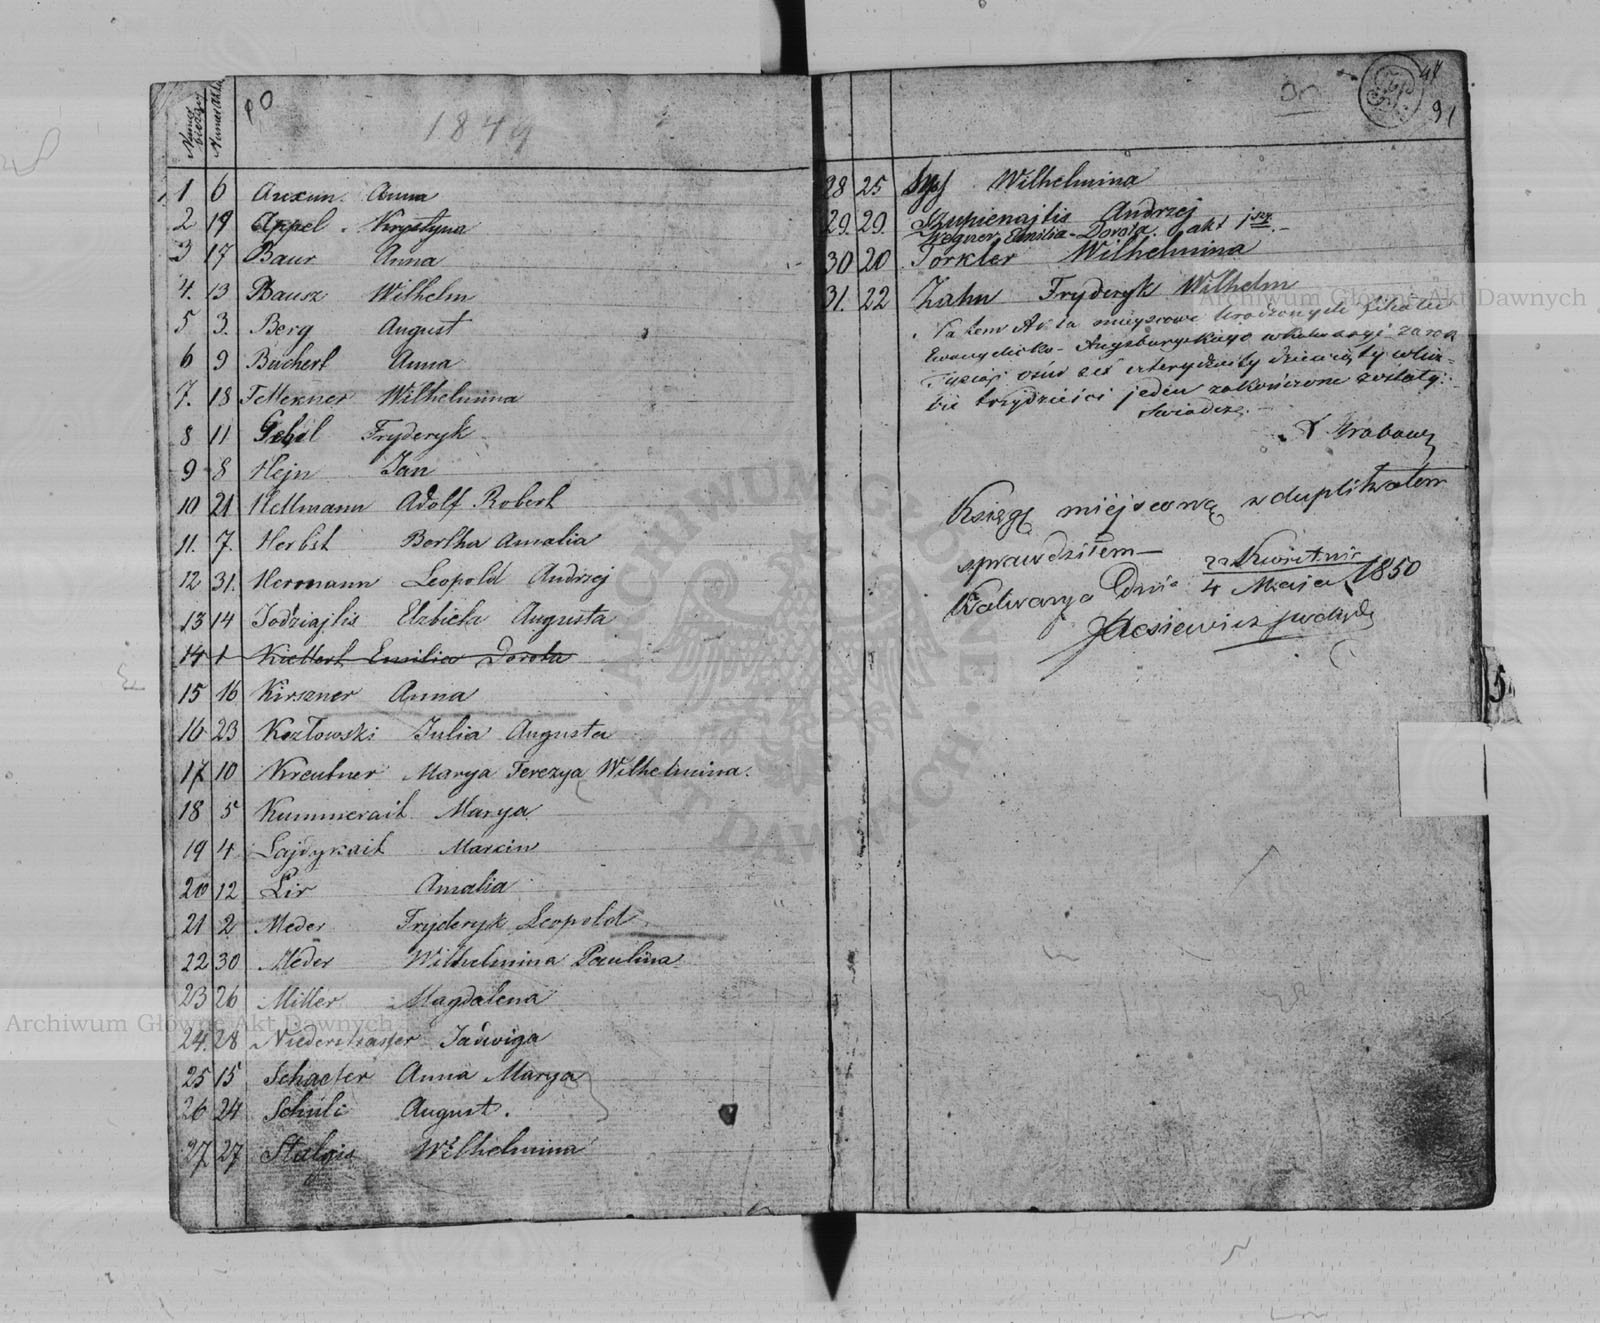 Numer bieżący
Numer Aktu
90
1849
1 6 Auxun Anna
2 19 Appel Krystyna
3 17 Baur Anna
4. 13 Bausz Wilhelm
5 3. Berg August
6 9 Buchert Anna
7. 18 Wilhelmina
8 11 Gebel Fryderyk
9 8 Hejn Jan
10 21 Hellmann Adolf Robert
11. 7. Herbst Bertha Amalia
12 31. Hermann Leopold Andrzej
13 14 Jodziajtis Elzbieta Augusta
14 1 Emilia Dorota
15 16 Kirszner Anna
16 23 Kozłowski Julia Augusta
17 10 Kreutner Marya Terezya Wilhelmina.
18 5 Kummerait Marya
19 4 Lajdykait Marcin
20 12 Lir Amalia
21 2 Meder Fryderyk Leopold
22 30 Meder Wilhelmina Paulina
23 26 Miller Magdalena
24. 28 Niederstrasser Jadwiga
25 15 Schaefer Anna Marya
26 24 Schulc August.
27 27 Wilhelmina
91
28 25 Wilhelmina
29. 29. Andrzej
Wegner Emilia Dorota. akt 1szy.
30 20 Torkler Wilhelmina
31. 22 Zahn Fryderyk Wilhelm
Akta miejscowe Urodzonych filiału
Ewangelicko-Augsburgskiego w Kalwaryi za rok
Tysiąc ośmset czterydziesty dziewiąty w licz-
bie trzydzieści jeden zakończone zostały.
świadczę.
Grabowy
Księgę miejscową z duplikatem
sprawdziłem
Kalwarya Dnia 22 Kwietnia 1850
4 Maja
Archiwum Główne Akt Dawnych
Archiwum Główne Akt Dawnych
ARCHIWUM GŁÓWNE AKT DAWNYCH